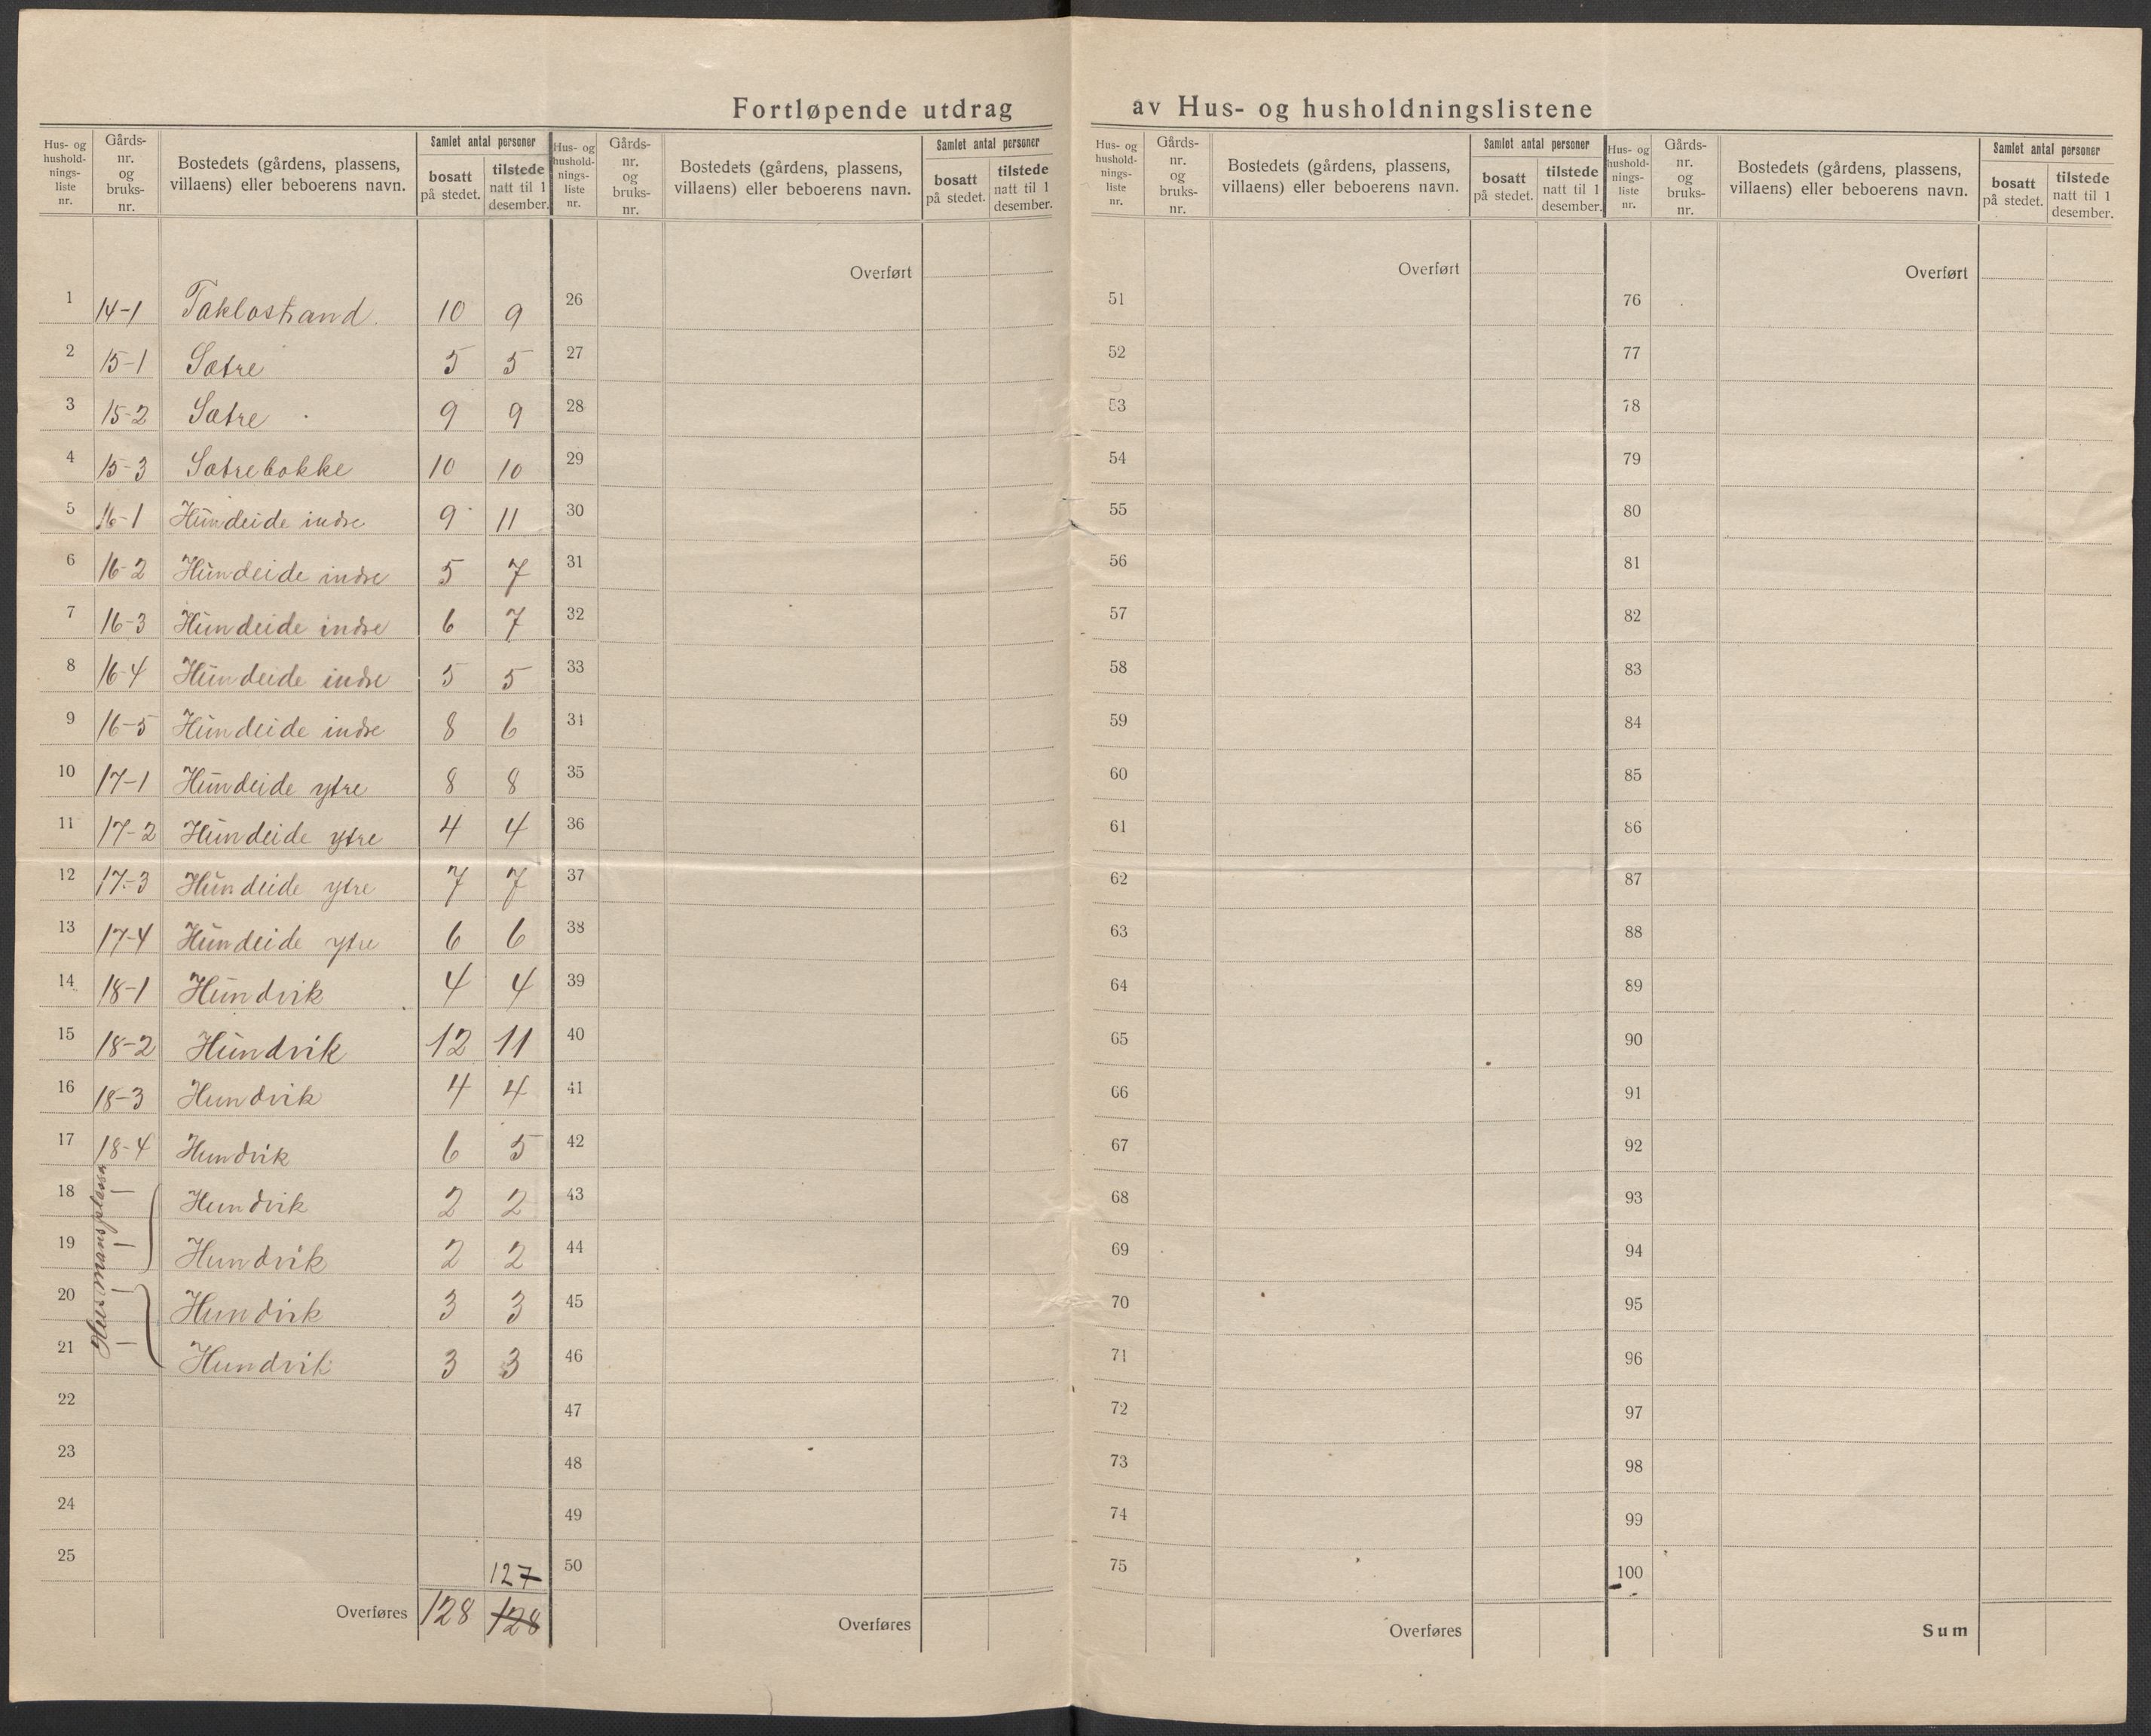 Fortløpende utdrag av Hus- og husholdningslistene
Hus- og hushold- nings- liste nr. Gårds- nr. og bruks- nr. Bostedets (gårdens, plassens, villaens) eller beboerens navn. Samlet antal personer bosatt på stedet. tilstede natt til 1 desember.
Hus- og hushold- nings- liste nr. Gårds- nr. og bruks- nr. Bostedets (gårdens, plassens, villaens) eller beboerens navn. Samlet antal personer bosatt på stedet. tilstede natt til 1 desember.
Hus- og hushold- nings- liste nr. Gårds- nr. og bruks- nr. Bostedets (gårdens, plassens, villaens) eller beboerens navn. Samlet antal personer bosatt på stedet. tilstede natt til 1 desember.
Hus- og hushold- nings- liste nr. Gårds- nr. og bruks- nr. Bostedets (gårdens, plassens, villaens) eller beboerens navn. Samlet antal personer bosatt på stedet. tilstede natt til 1 desember.
Overført Overført Overført
1 14-1 Taklostrand 10 9 26 51 76
2 15-1 Sætre 5 5 27 52 77
3 15-2 Sætre 9 9 28 53 78
4 15-3 Sætrebakke 10 10 29 54 79
5 16-1 Hundeide indre 9 11 30 55 80
6 16-2 Hundeide indre 5 7 31 56 81
7 16-3 Hundeide indre 6 7 32 57 82
8 16-4 Hundeide indre 5 5 33 58 83
9 16-5 Hundeide indre 8 6 34 59 84
10 17-1 Hundeide ytre 8 8 35 60 85
11 17-2 Hundeide ytre 4 4 36 61 86
12 17-3 Hundeide ytre 7 7 37 62 87
13 17-4 Hundeide ytre 6 6 38 63 88
14 18-1 Hundvik 4 4 39 64 89
15 18-2 Hundvik 12 11 40 65 90
16 18-3 Hundvik 4 4 41 66 91
17 18-4 Hundvik 6 5 42 67 92
18 — Hundvik 2 2 43 68 93
19 — Hundvik 2 2 44 69 94
20 — Hundvik 3 3 45 70 95
21 — Hundvik 3 3 46 71 96
22 47 72 97
23 48 73 98
24 49 74 99
25 127 50 75 100
Overføres 128 128 Overføres Overføres Sum